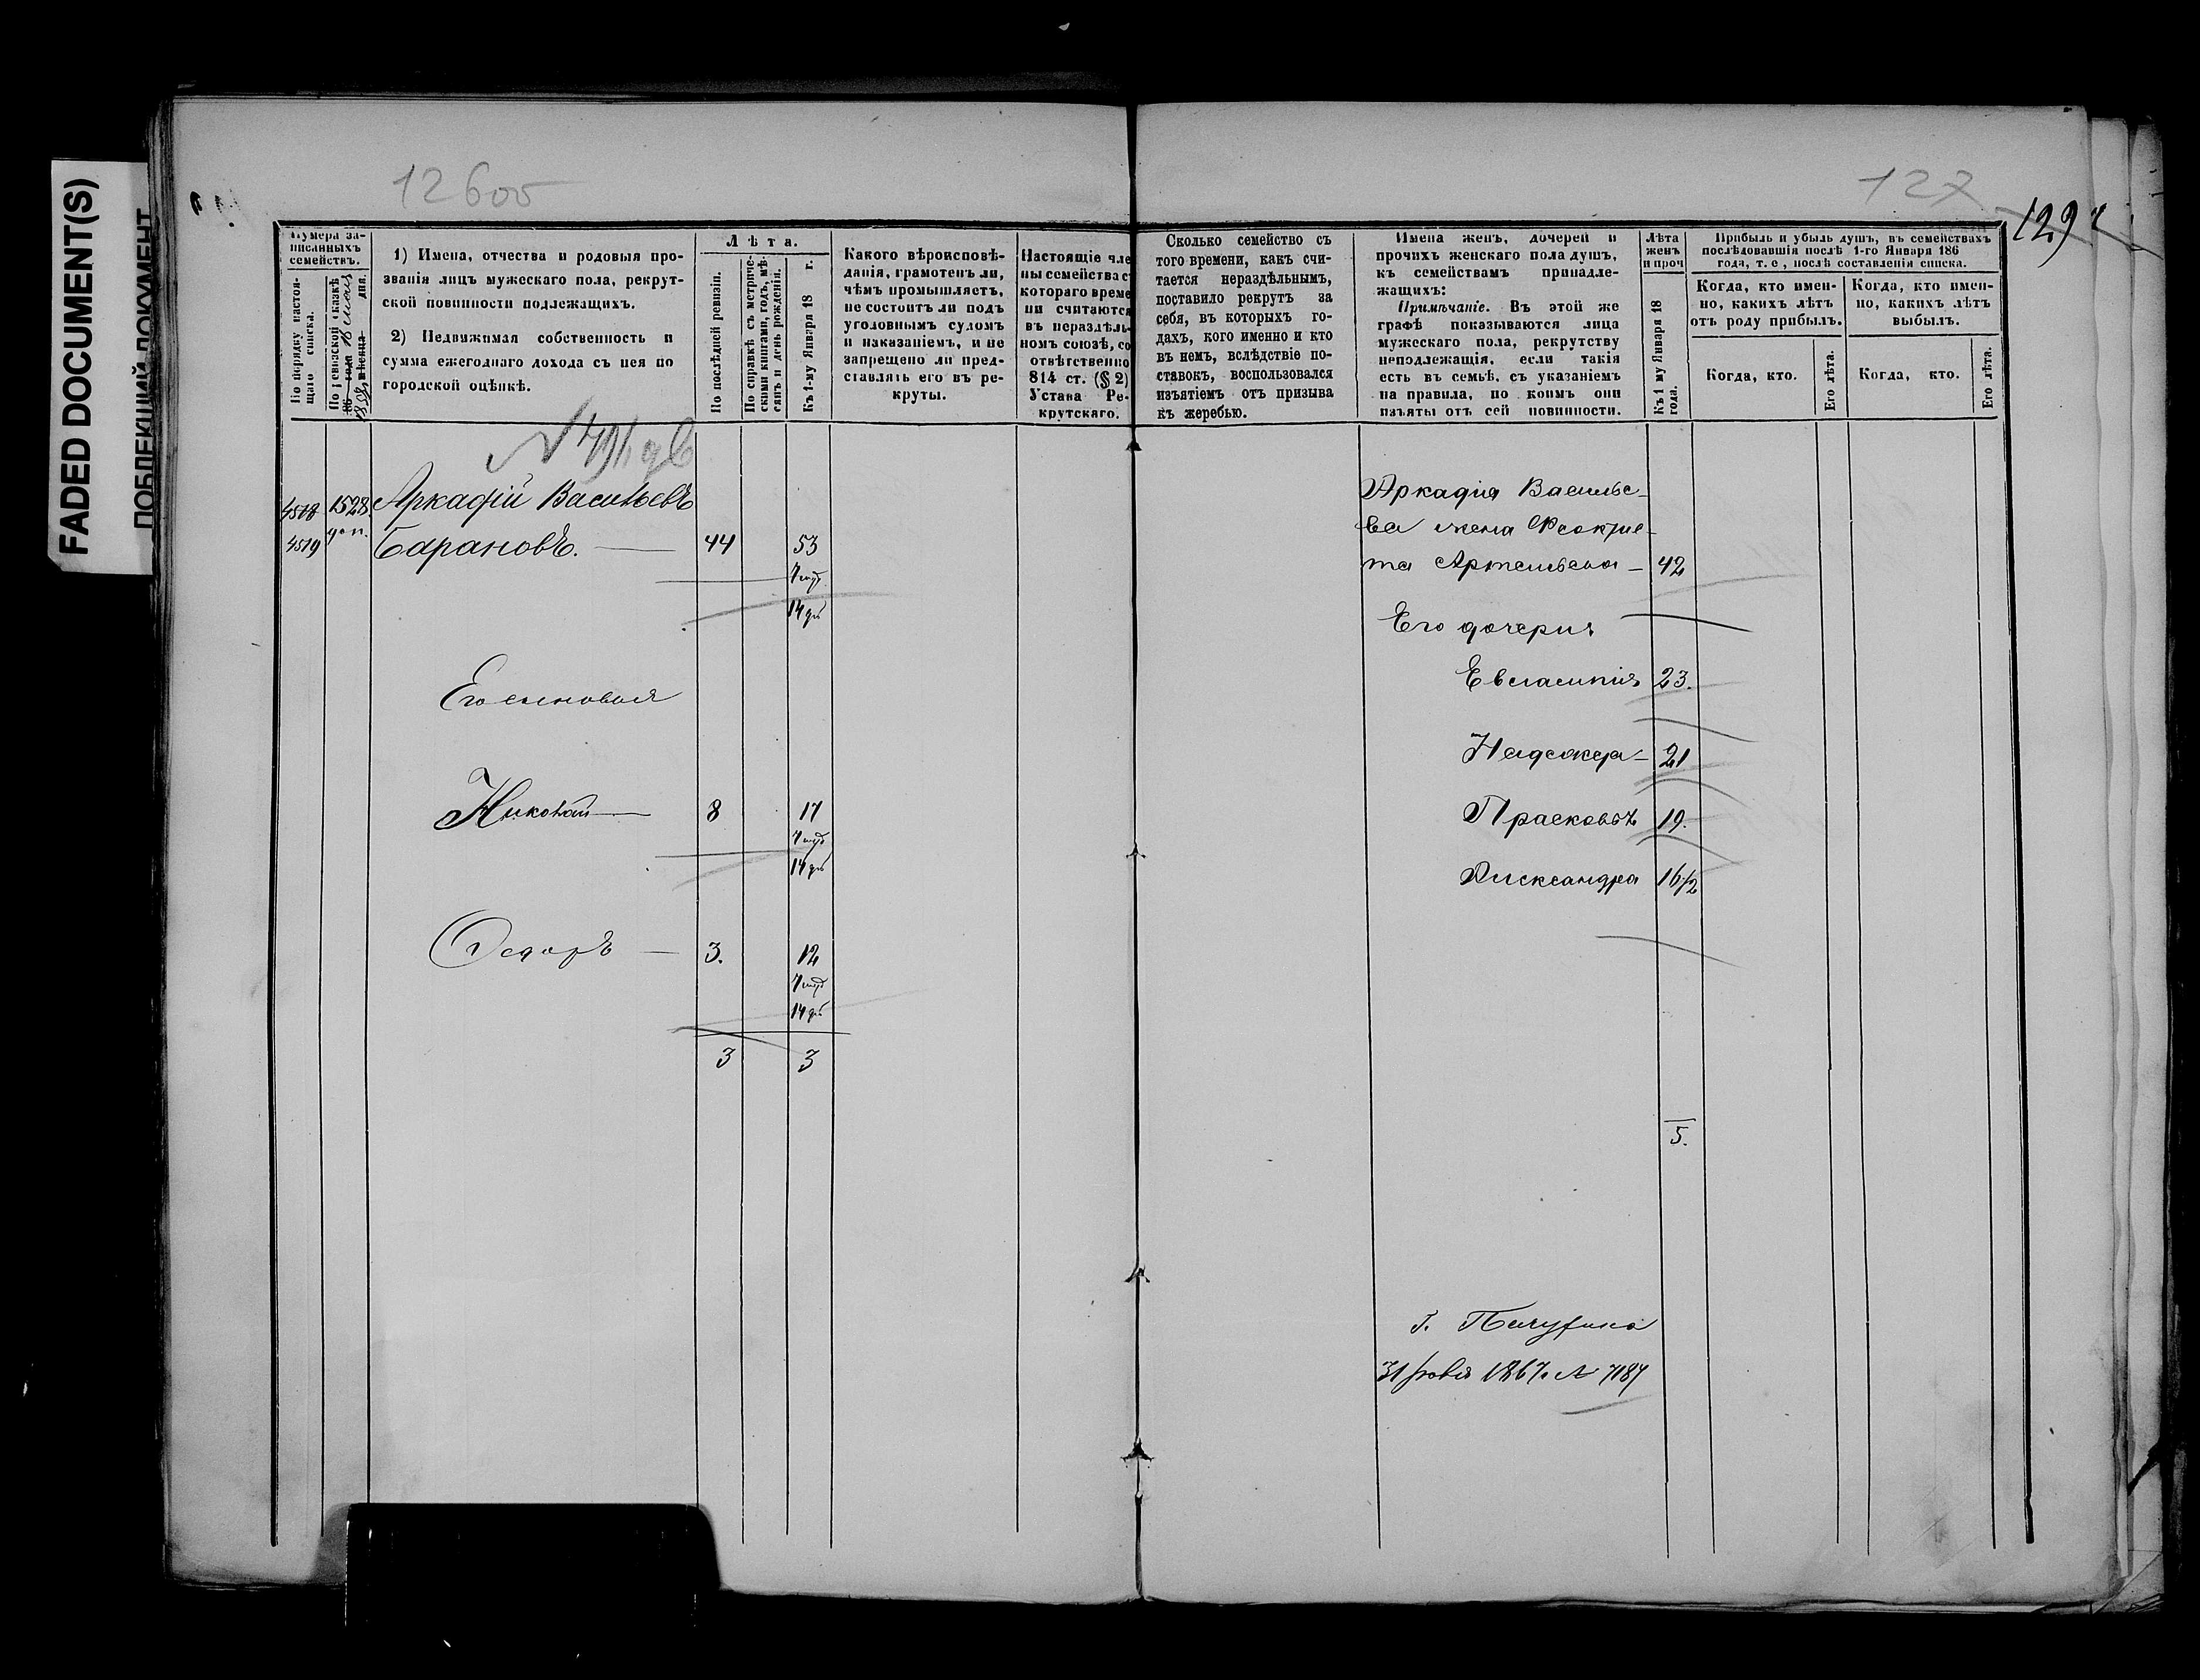 FADED DOCUMENT(S)
12600
127
129
Нумера за-
писанныхъ
семействъ.
По порядку настоя-
щаго списка.
По ревизской сказкѣ
1858
1) Имена, отчества и родовыя про-
званія лицъ мужескаго пола, рекрут-
ской повинности подлежащихъ.
2) Недвижимая собственность и
сумма ежегоднаго дохода съ нея по
городской оцѣнкѣ.
Лѣта.
По послѣдней ревизіи.
По справкѣ съ метриче-
скими книгами, годъ, мѣ-
сяцъ и день рожденія.
Къ 1-му Января 18 г.
Какого вѣроисповѣ-
данія, грамотенъ ли,
чѣмъ промышляетъ,
не состоитъ ли подъ
уголовнымъ судомъ
и наказаніемъ, и не
запрещено ли пред-
ставлять его въ ре-
круты.
Настоящіе чле
ны семейства с
котораго време
ни считаются
въ нераздѣль-
номъ союзѣ, со
отвѣтственно
814 ст. (§ 2)
Устава Ре-
крутскаго.
Сколько семейство съ
того времени, какъ счи-
тается нераздѣльнымъ,
поставило рекрутъ за
себя, въ которыхъ го-
дахъ, кого именно и кто
въ немъ, вслѣдствіе по-
ставокъ, воспользовался
изъятіемъ отъ призыва
къ жеребью.
Имена женъ, дочерей и
прочихъ женскаго пола душъ,
къ семействамъ принадле-
жащихъ:
Примѣчаніе. Въ этой же
графѣ показываются лица
мужескаго пола, рекрутству
неподлежащія, если такія
есть въ семьѣ, съ указаніемъ
на правила, по коимъ они
изъяты отъ сей повинности.
Лѣта
женъ
и проч
Къ 1 му Января 18
года.
Прибыль и убыль душъ, въ семействахъ
послѣдовавшія послѣ 1-го Января 186
года, т. е., послѣ составленія списка.
Когда, кто имен-
но, какихъ лѣтъ
отъ роду прибылъ.
Когда, кто имен-
но, какихъ лѣтъ
выбылъ.
Когда, кто.
Его лѣта.
Когда, кто.
Его лѣта.
4518 1528 Аркадій Васильевъ
4519 доп. Барановъ. 44 53
14 дн
Его сыновья
Николай 8 17
14 дн
Ѳедоръ 3. 12
14 дн
3 3
Аркадія Василье-
ва жена Ѳеокти-
ста Артемьева 42
Его дочери
Евлампія 23.
Надежда 21
Прасковья 19.
Александра 16 1/2
5.
31 1867 № 7187